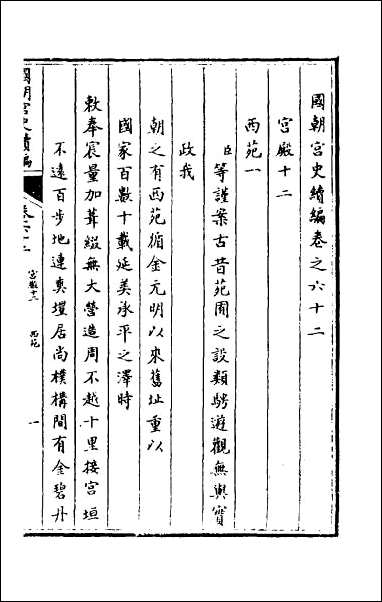 國朝宮史續編卷之六十二
宮殿十二
西苑一
臣等謹案古昔苑囿之設類騁遊觀無輿實
政我
朝之有西苑循金元明以來舊址重以
國家百數十載延美承平之澤時
敕奉宸量加葺綴無大營造周不越十里接宮垣
不遠百步地連爽塏居尚樸構間有金碧丹
國朝宮史續編
卷六十二
宮殿十二
西苑
一